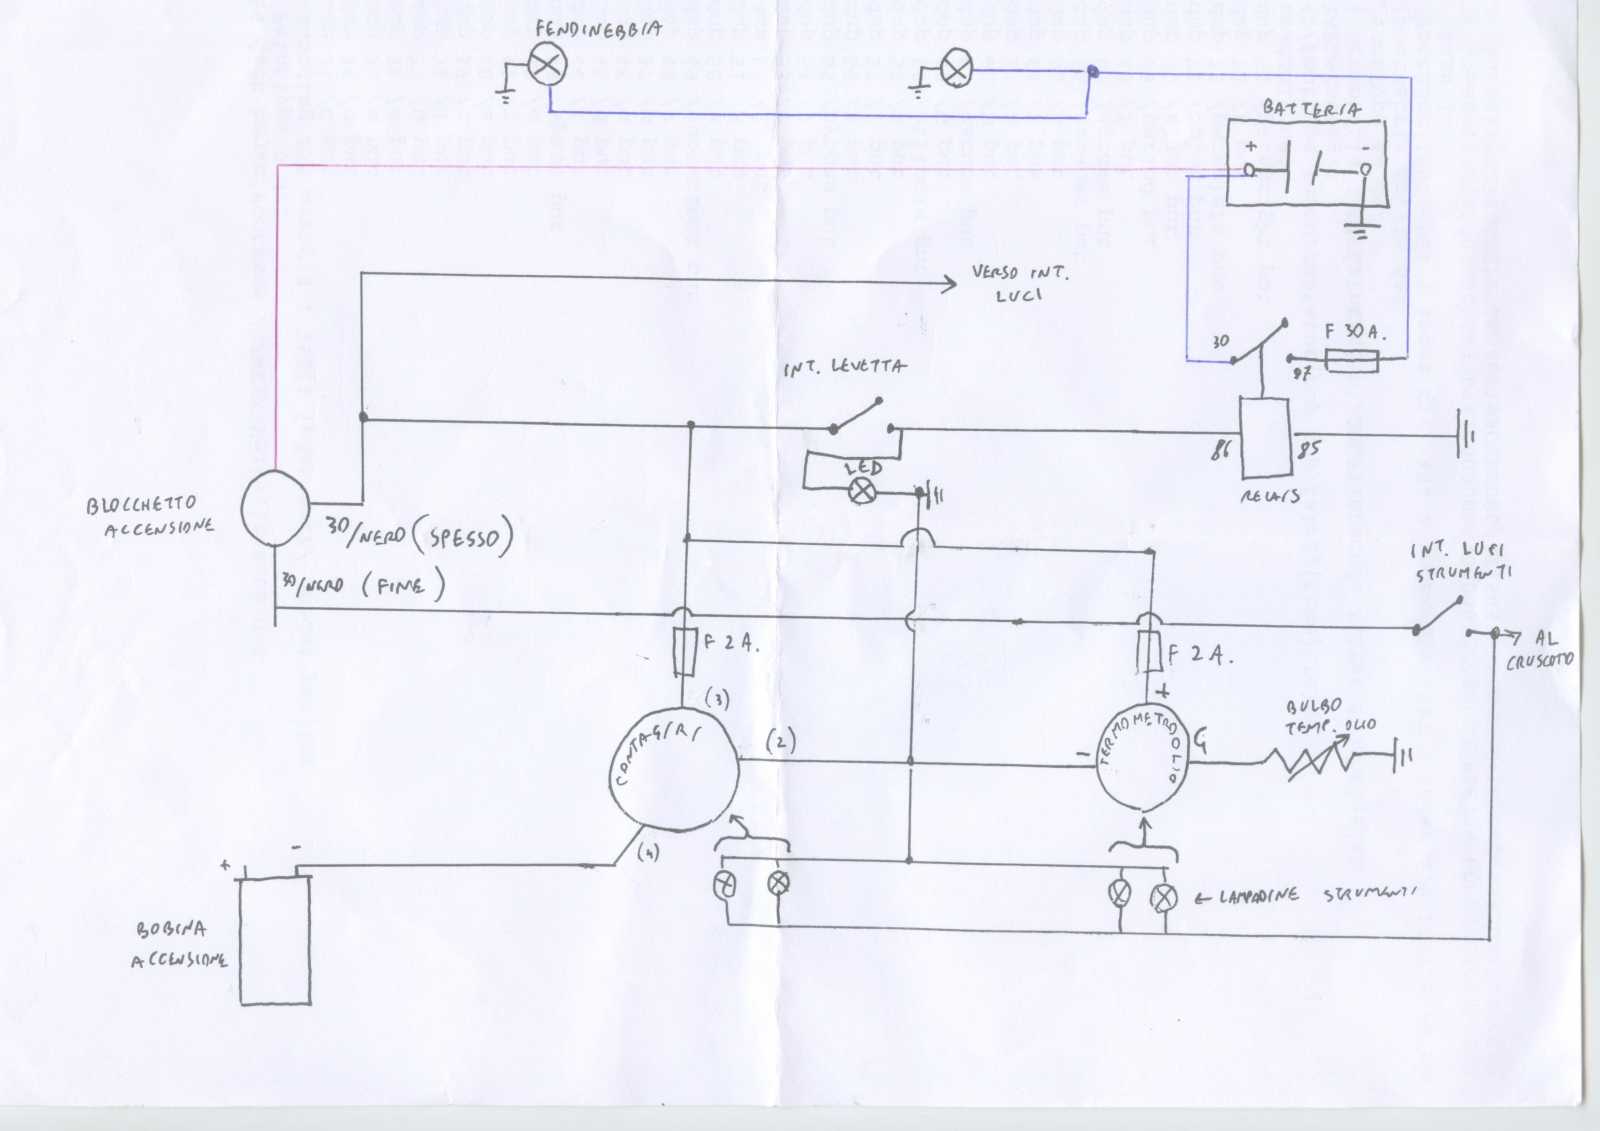 FENDINEBBIA
BATTERIA
+ -
VERSO INT.
LUCI
30
F 30 A.
87
INT. LEVETTA
86
85
LED
RELAIS
BLOCCHETTO
ACCENSIONE
30/NERO (SPESSO)
30/NERO (FINE)
INT. LUCI
STRUMENTI
AL
CRUSCOTTO
F 2 A.
F 2 A.
(3)
+
CONTAGIRI
(2)
-
TERMOMETRO
OLIO
G
BULBO
TEMP. OLIO
(4)
+ -
← LAMPADINE STRUMENTI
BOBINA
ACCENSIONE